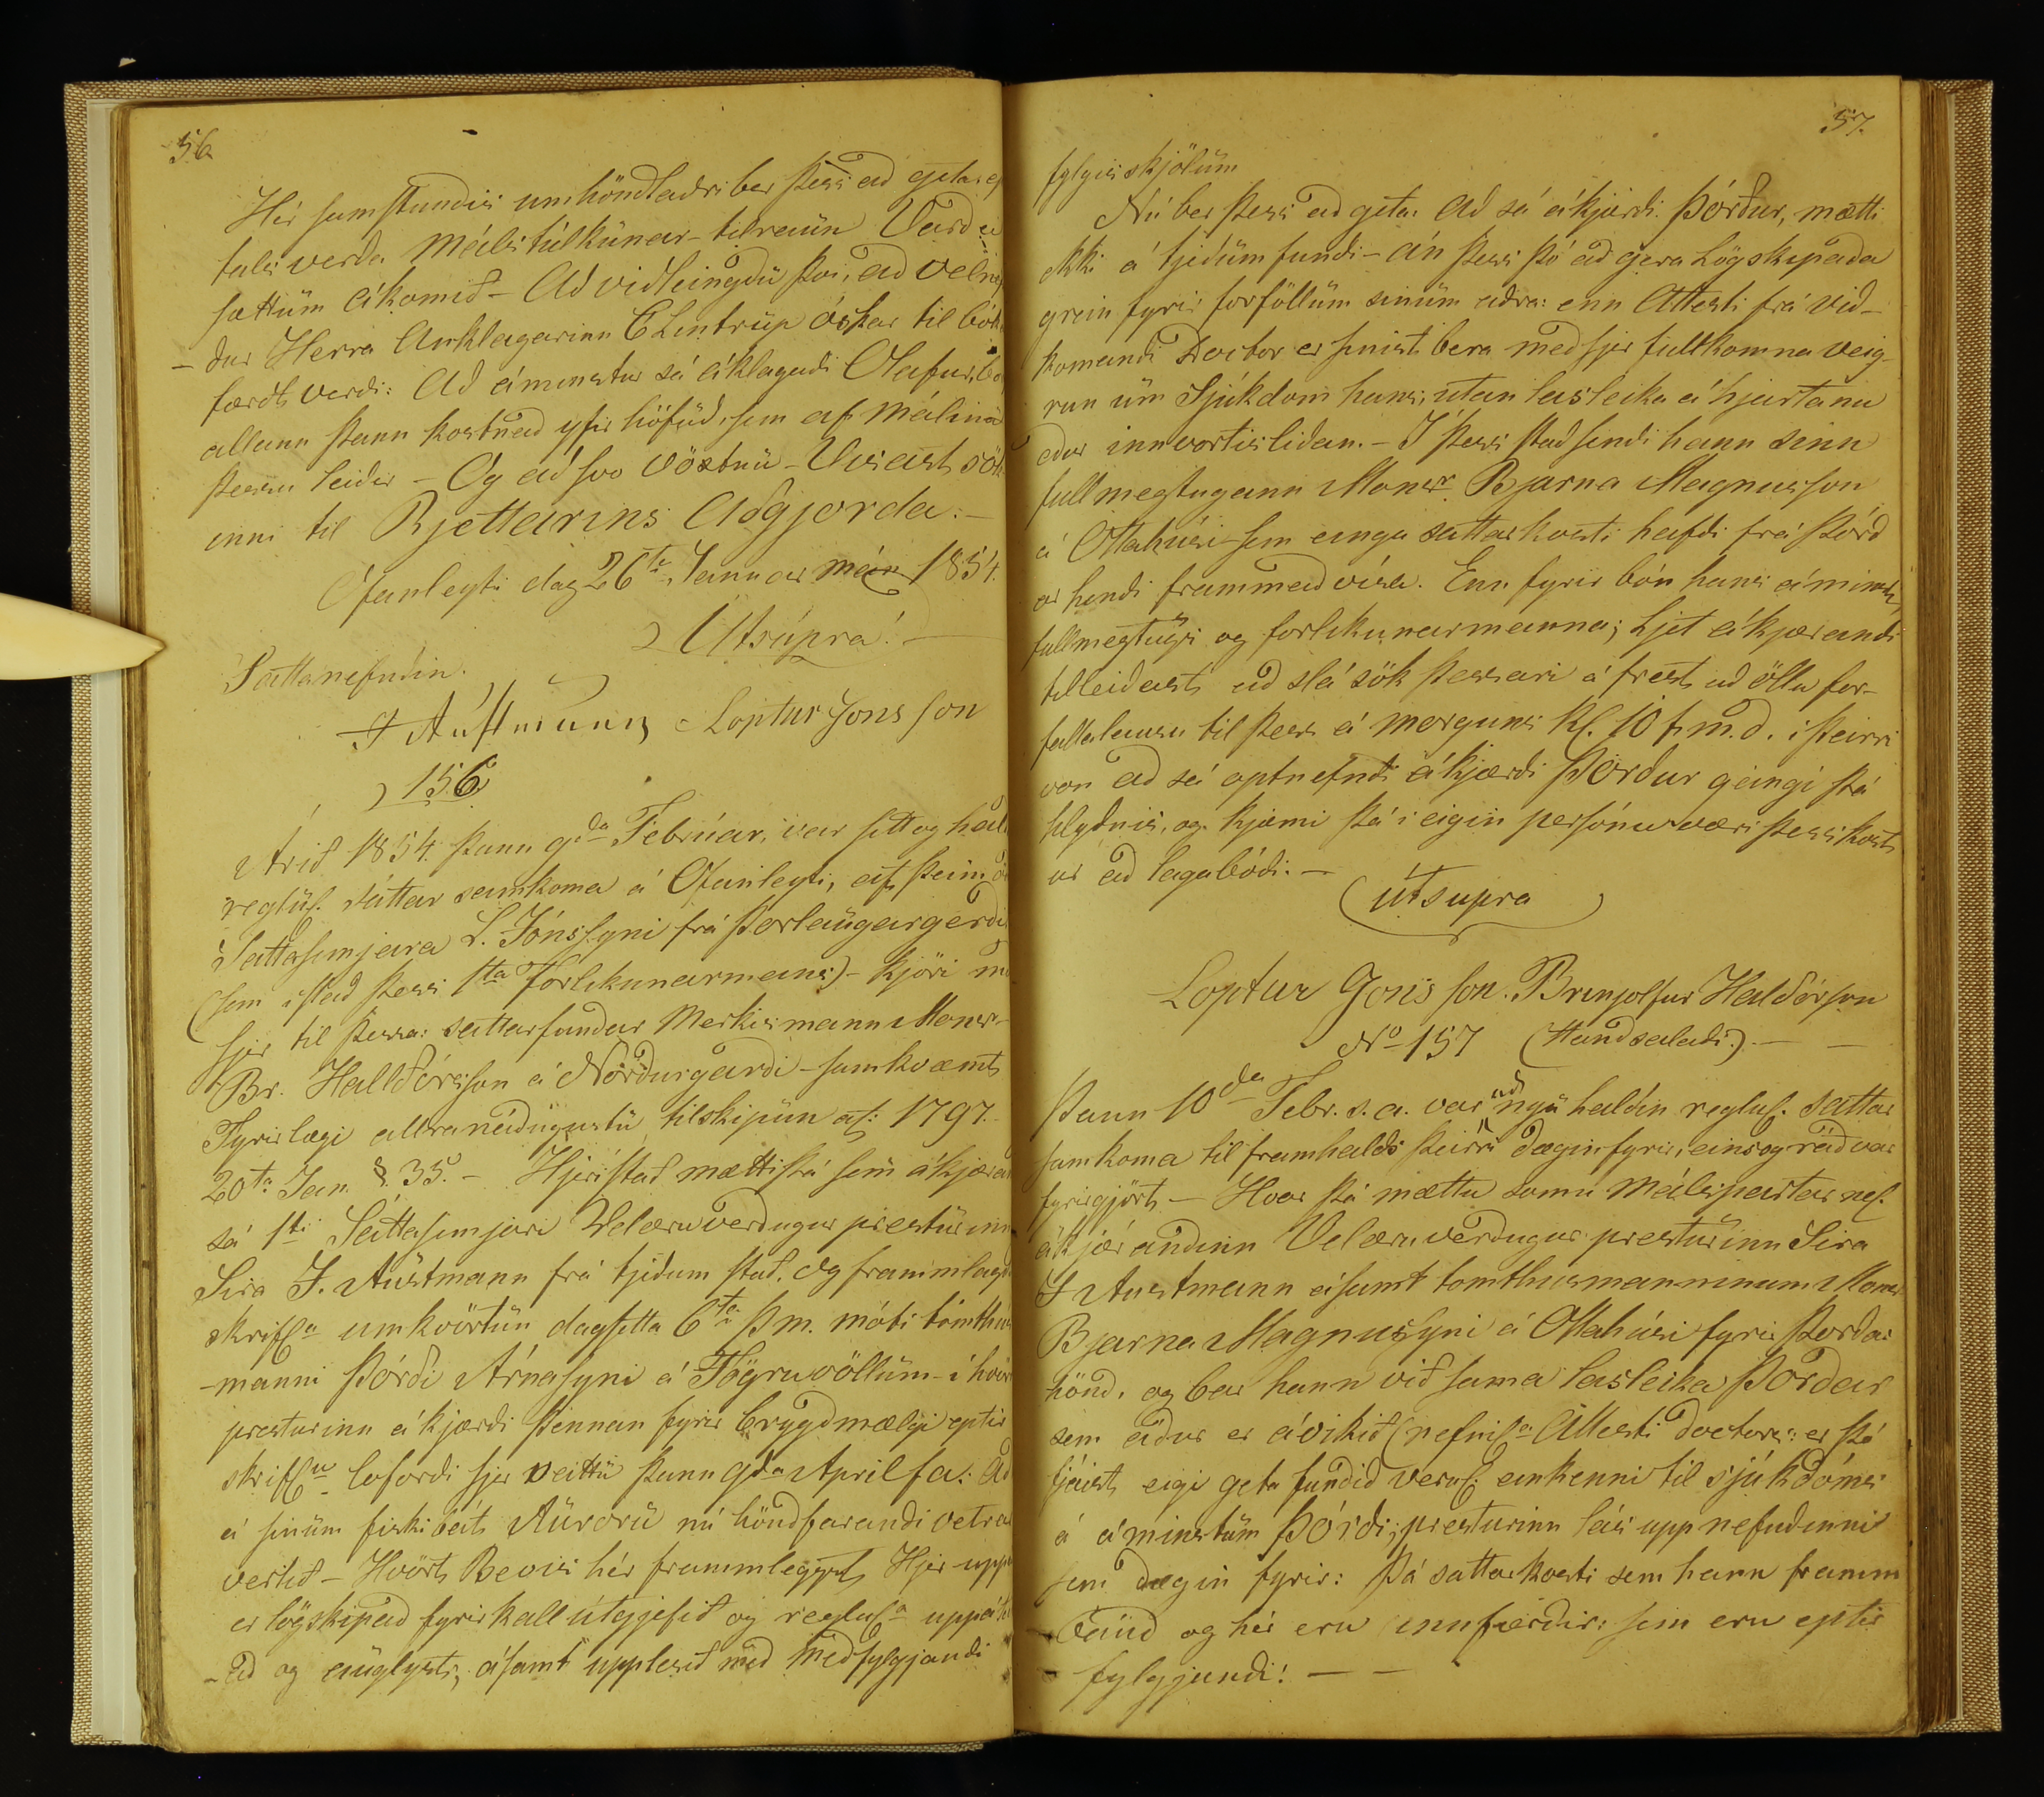 56.
Hér samstundis umhöndladri ber þess ad geta: ef
tals verda Máls túlkünar-tilraün Vard ei
sættüm ákomið - Að vidleingdü því, að velnef
- dur Herra Anklagarinn C Lintrüp óskar til bók
færdt verdi: Að áminstur sá áklagadi Olafur, bo
allann þann kostnad yfir höfüd, sem af málinu
þessu leidir - Og að svo vöxtnü - Visast sök
inni til Rjettarins Adgjorda: -
Ofanleyti dag 26ta Januar mán 1854.
Utsúpra! -
Sáttanefndin.
J Aústmann Loptur Jons son
156
Arið 1854. þann 9da Febrúar, var sett og hald
reglül. sáttar samkoma á Ofanleyti, af þeim ö
Sáttasemjara L. Jónssyni frá Þorlaügargerdi
(sem í stad þess 1ta Forlíkunarmans) - kjöri me
sjer til þessa: sáttarfundar Merkismann Monsr-
Br. Halldórsson á Nordurgardi - samkvæmt
Fyrirlægi allranádügustü tilskipün af: 1797.
20ta Jan. §. 35. - Hjerístad mætti þá sem ákjæran
sá 1ti Sáttasemjari Velæruverdugur prestürinn
Sira J. Aüstmann frá tjedum stad. og frammlagd
skrifla umkvörtün dagsetta 6ta þ.m. móti tómthús
-manni Þórði Árnasyni á Fögruvöllüm - í hvör
presturinn ákjærdi þennan fyrir brygdmælgi eptir
skriflu lofordi sjer veittü þann 9da April f.a.: Að
á sinüm fiskibát Aürorü nú höndfarandi vetrar
vertid - Hvört Bevis hér frammleggst, Hjer upp
er lögskipad fyrirkall útgjefid og reglula uppá
- ið og aüglyst; ásamt upplesid med medfylgjandi
57.
fylgisskjölüm
Nú ber þess ad geta: Að sá ákjærdi Þórður, mætti
ekki á tjedüm fundi - án þess þó ad gera Lögskipada
grein fyrir forföllüm sinüm adra: enn Attesti frá vid-
komandi Doctor er sínist bera med sjer fullkomna veig-
run um Sjúkdom hans, utan lasleika á hjartanu
edur innvortislidan. - I þess stad sendi hann sinn
fullmegtugann Monsr. Bjarna Magnusson
á Ottahúsi sem eingu sáttarkosti hafdi frá Þórd
ar hendi frammad vísa. Enn fyrir bón hans áminst
fullmegtugs og forlikunarmanna; Ljet ákjærandi
tilleidast ad slá sök þessari á frest ad öllu for-
fallalausu til þess á morguns kl. 10 f.m.d. í þeirri
von ad sá optnefndi ákjærdi Þórdur geingi þá
hlydnis, og kjæmi þá í eigin persónu væri þess kost
ur að lagabódi. -
útsupra
Loptur Jons son. Brinjolfur Haldórson
No 157 (Handsaladi.) - -
Þann 10da Febr. s.a. var ad nyü haldin reglul. sattar
samkoma til framhalds þeirri daginn fyrir, eins og rád var
fyrirgjört - Hvar þá mættu somu málspartar nef.
ákjærandinn Velæruverdugur presturinn Sira
J Austmann ásamt tomthusmanninum Monsr
Bjarna Magnussyni á Ottahúsi fyrir Þordar
hönd, og bar hann við sama lasleika Þordar
sem áður er ávikið (nefnil. Attesti doctors: er þó
tjáist eigi geta fundid verul. einkenni til sjúkdóms
á áminstüm Þórdi; presturinn las upp nefndinni
sem daginn fyrir: Þá sattarkosti sem hann framm
baud og hér eru innfærdir: sem eru eptir
fylgjandi! - -